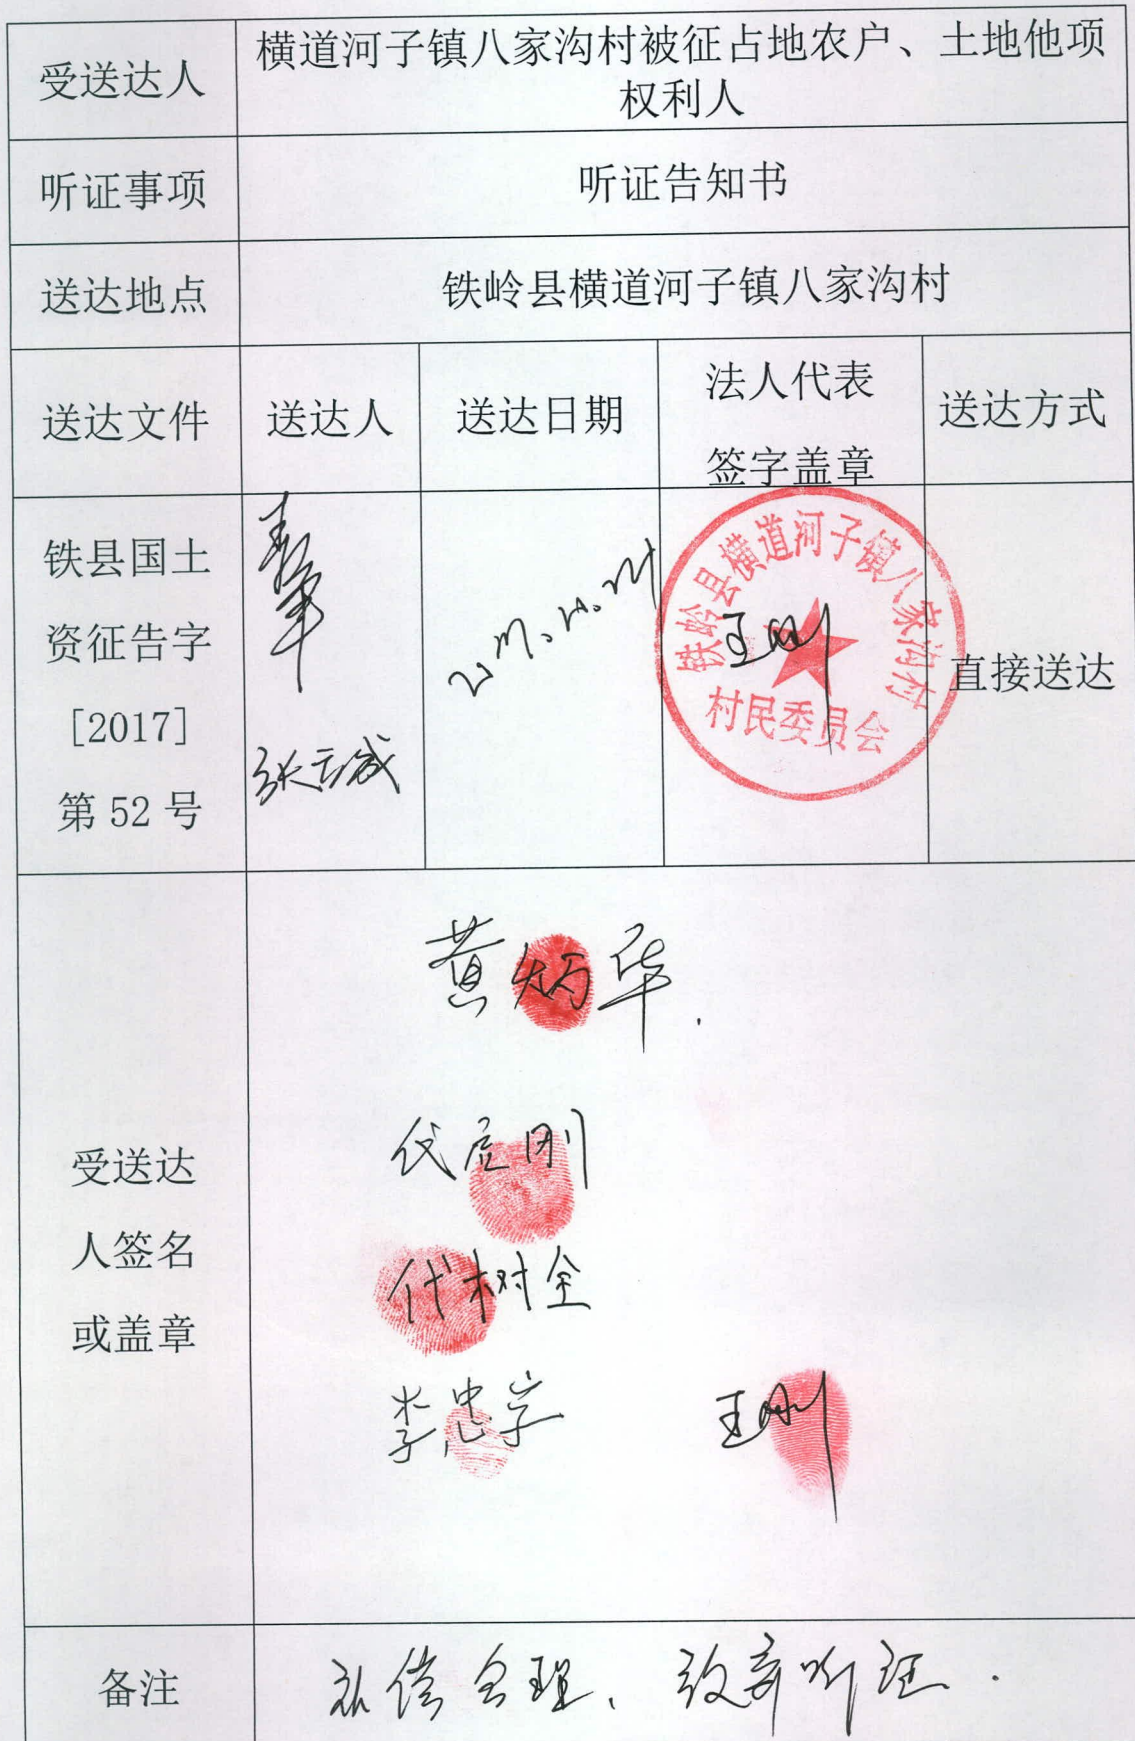 受送达人
横道河子镇八家沟村被征占地农户、土地他项
权利人
听证事项
听证告知书
送达地点
铁岭县横道河子镇八家沟村
送达文件
送达人
送达日期
法人代表
签字盖章
送达方式
铁县国土
资征告字
[2017]
第 52 号
张云成
铁岭县横道河子镇八家沟村
村民委员会
王刚
直接送达
受送达
人签名
或盖章
黄炳华
刚
代树全
李忠学
王刚
备注
补偿合理、放弃听证.